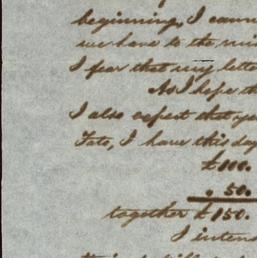 beginning, I cann
we have to the mi
I fear that my lette
As I hope th
I also expect that yo
Tate, I have this day
£100.
" 50.
together £150.
I intens